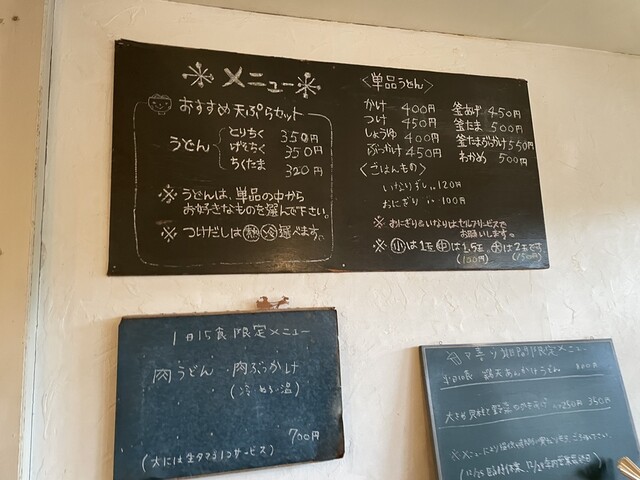 ※メニュー※
おすすめ天ぷらセット
うどん
とりちく 350円
げそちく 350円
ちくたま 320円
※うどんは、単品の中から
お好きなものを選んで下さい。
※つけだしは熱冷選べます。
〈単品うどん〉
かけ 400円 釜あげ 450円
つけ 450円 釜たま 500円
しょうゆ 400円 釜たまぶっかけ 550円
ぶっかけ 450円 わかめ 500円
〈ごはんもの〉
いなりずし 120円
おにぎり 100円
※おにぎり&いなりはセルフサービスで
お願いします。
※小は1玉中は1.5玉、大は2玉です
(100円) (150円)
1日15食限定メニュー
肉うどん 肉ぶっかけ
(冷 ぬるい 温)
700円
(大には生タマゴ1コサービス)
期間限定メニュー
鶏天あんかけうどん 800円
250円 350円